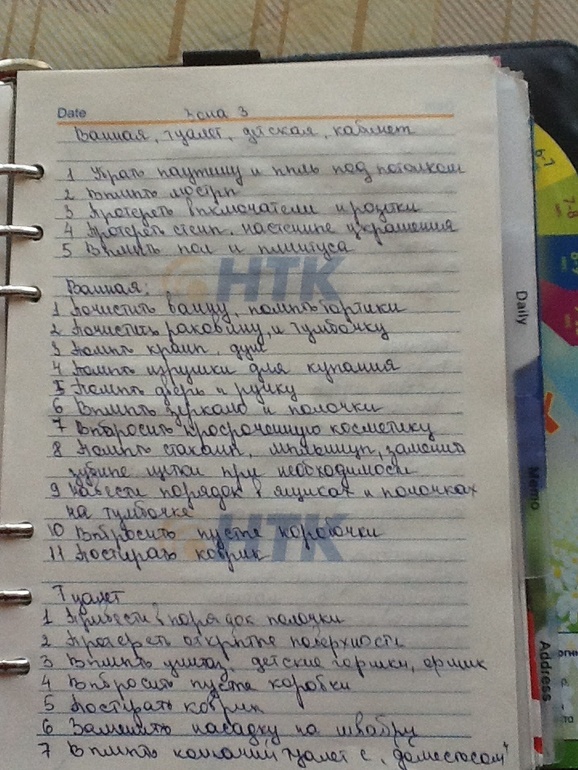 Date
Зона 3
Ванная, туалет, детская, кабинет
1 Убрать паутину и пыль под потолком
2 Вымыть люстры
3 Протереть выключатели и розетки
4 Протереть стены, настенные украшения
5 Вымыть пол и плинтуса
НТК
Ванная:
1 Почистить ванну, помыть бортики
2 Почистить раковину, и тумбочку
3 Помыть краны, душ
4 Помыть игрушки для купания
5 Помыть дверь и ручку
6 Вымыть зеркало и полочки
7 Выбросить просроченную косметику
8 Помыть стакан, мыльницу, заменить
зубные щетки при необходимости
9 Навести порядок в ящиках и полочках
на тумбочке
10 Выбросить пустые коробочки
11 Постирать коврик
НТК
Туалет
1 Привести в порядок полочки
2 Протереть открытые поверхности
3 Вымыть унитаз, детские горшки, ершик
4 Выбросить пустые коробки
5 Постирать коврик
6 Заменить насадку на швабру
7 Вымыть кошачий туалет с „доместосом"
6-7
7-8
Daily
Memo
Address